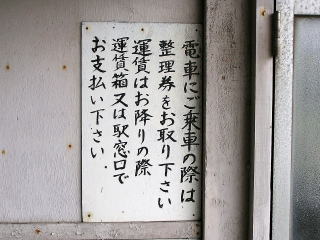 電車にご乗車の際は
整理券をお取り下さい
運賃はお降りの際
運賃箱又は駅窓口で
お支払い下さい.